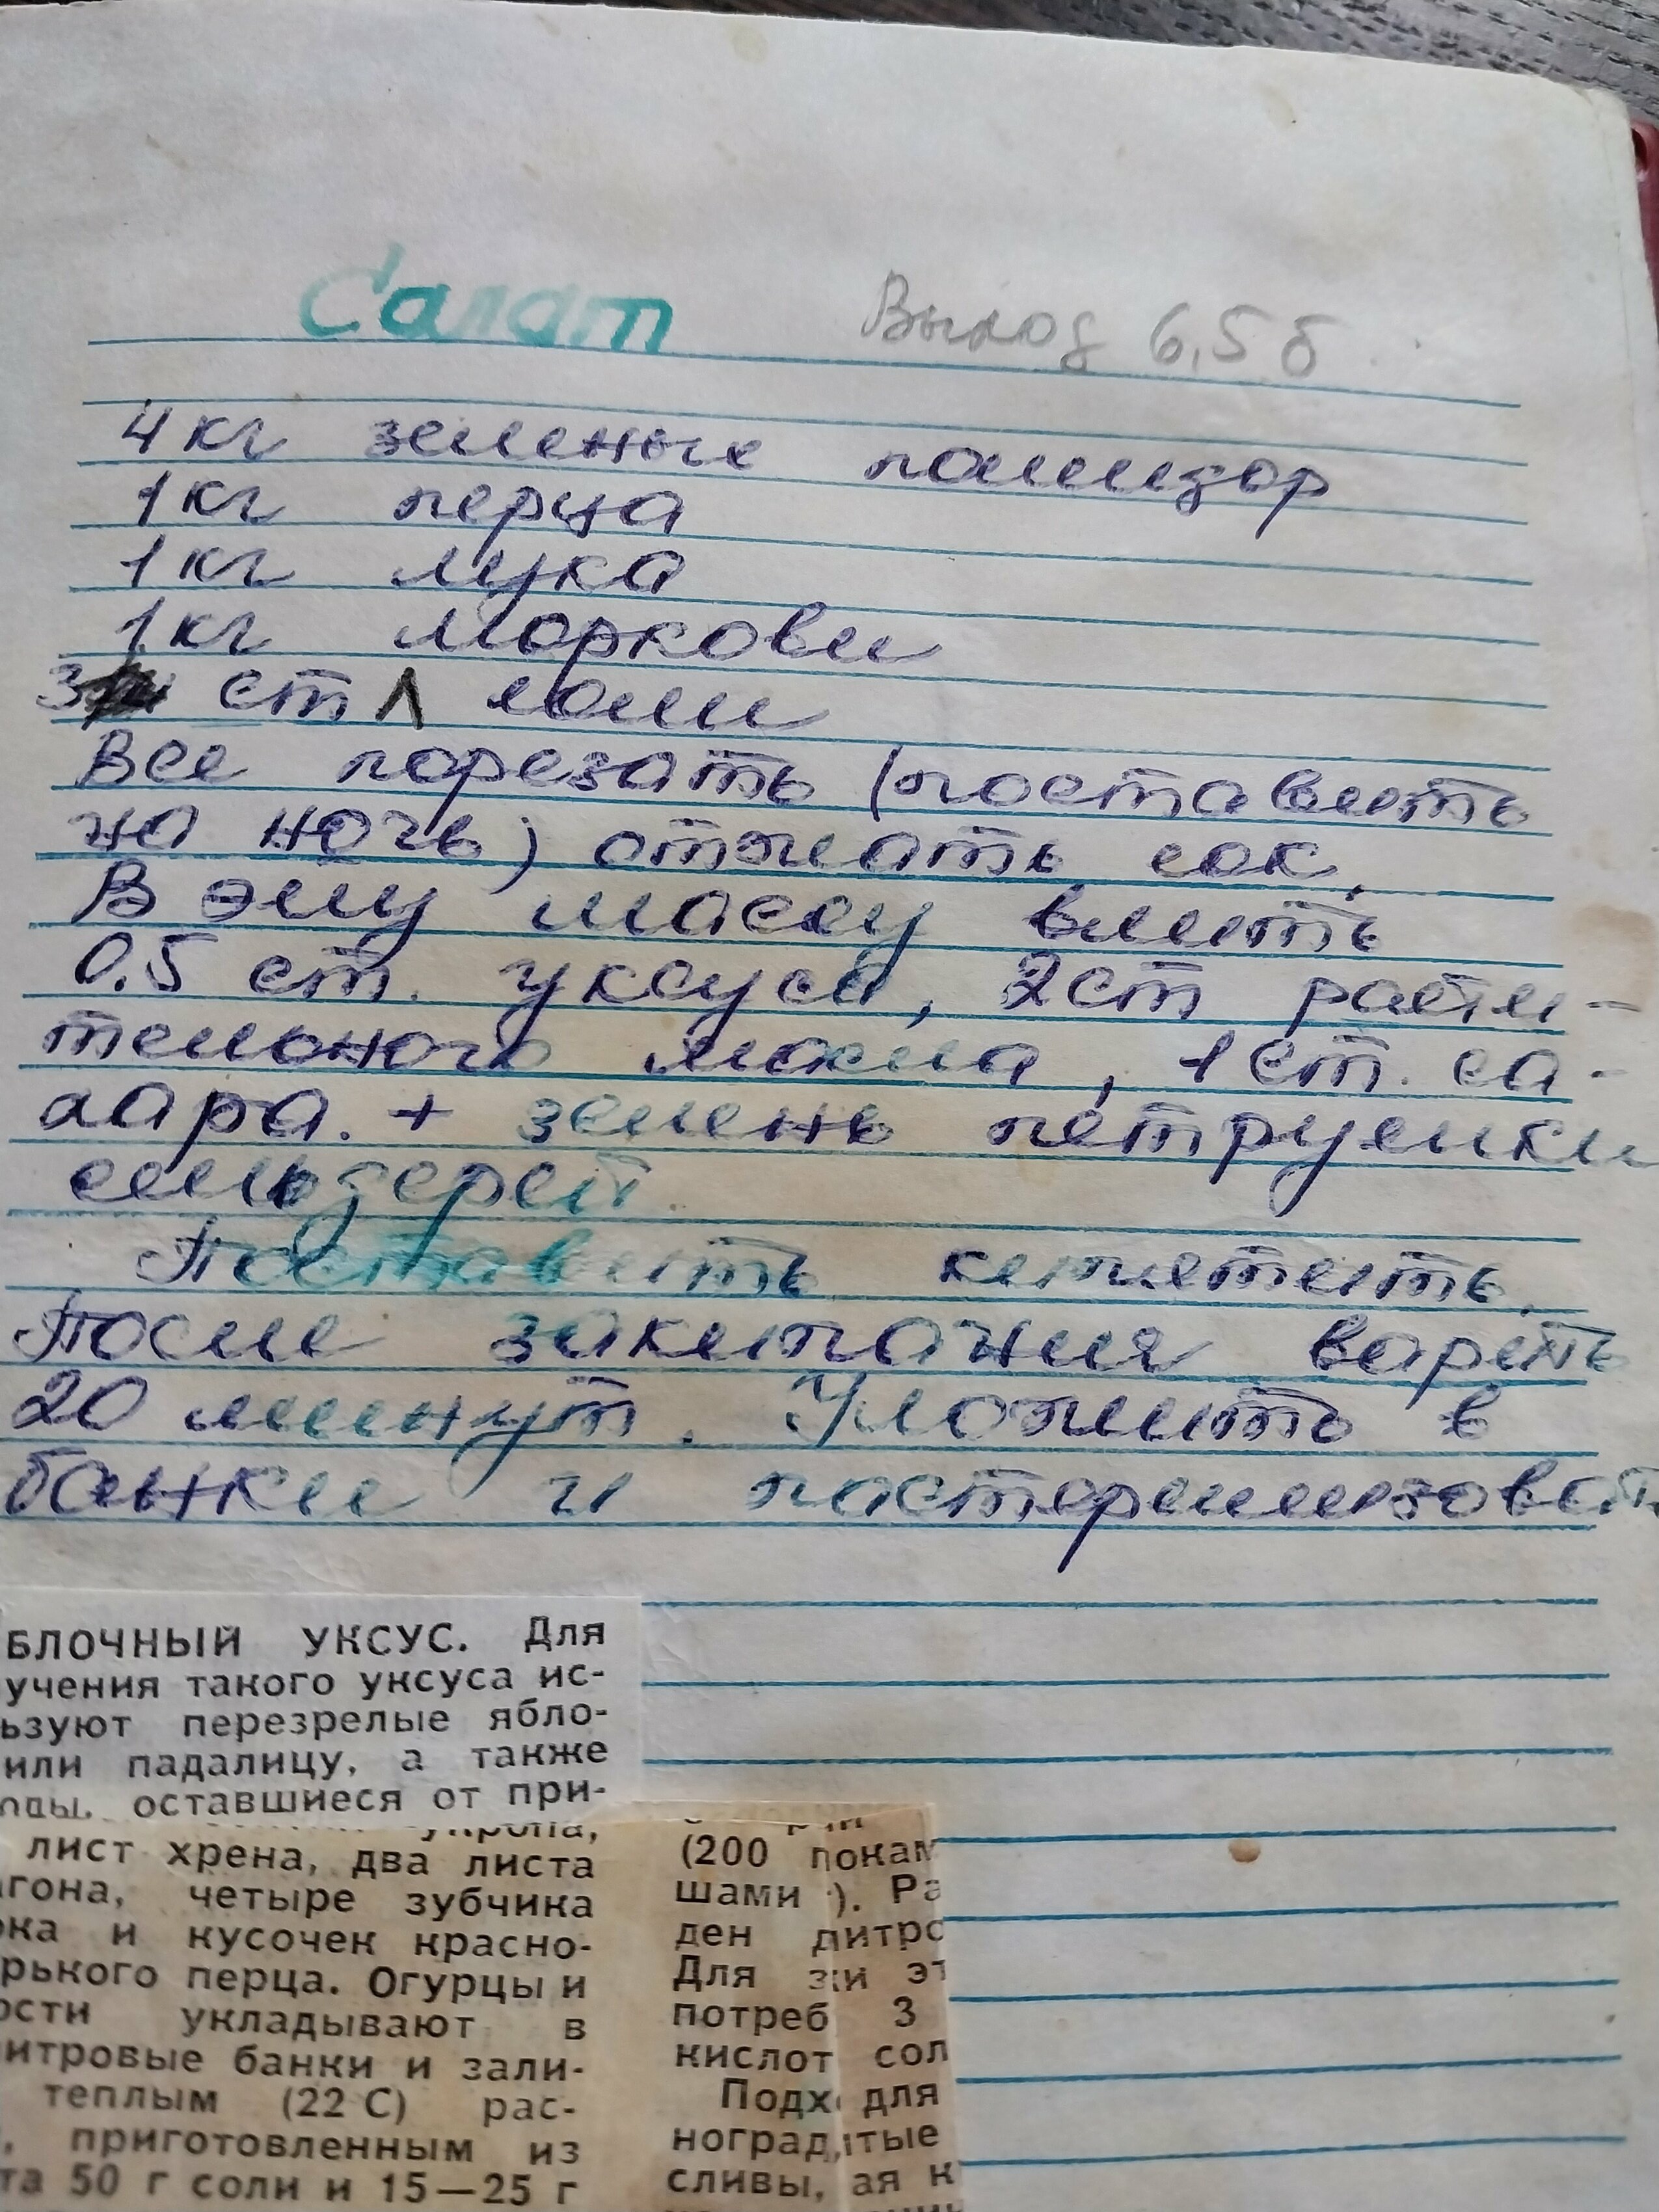 Салат Выход 6,5 б
4 кг зеленых помидор
1 кг перца
1 кг лука
1 кг моркови
3 ст л соли
Все порезать (поставить
на ночь) отжать сок.
В эту массу влить
0.5 ст. уксуса, 2 ст расти-
тельного масла, 1 ст. са-
хара. + зелень петрушки
сельдерей.
Поставить кипетить.
После закипания варить
20 минут. Уложить в
банки и пастеризоват
БЛОЧНЫЙ УКСУС. Для
учения такого уксуса ис-
ьзуют перезрелые ябло-
или падалицу, а также
оставшиеся от при-
укропа,
лист хрена, два листа
агона, четыре зубчика
ока и кусочек красно-
рького перца. Огурцы и
ости укладывают в
итровые банки и зали-
теплым (22 С) рас-
, приготовленным из
та 50 г соли и 15—25 г
(200 покам
шами ). Ра
ден литро
Для зи эт
потреб 3
кислот сол
Подх для
ноград, ытые
сливы, ая к